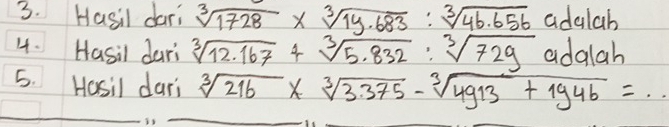 3. Hasil dari ∛1728 × ∛19.683 : ∛46.656 adalah
4. Hasil dari ∛12.167 + ∛5.832 : ∛729 adalah
5. Hasil dari ∛216 × ∛3.375 - ∛4913 + 1946 = ...